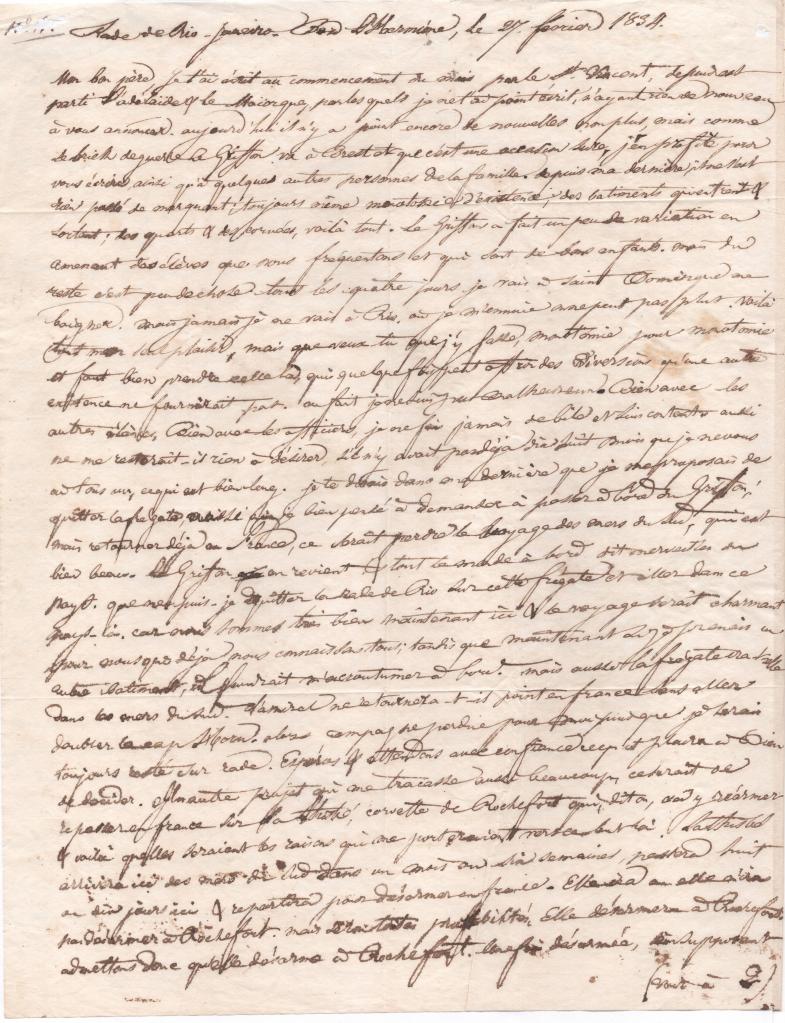 Rade de Rio-Janeiro. Bord L'Hermine, le 27 février 1834.
Mon bon père, je t'ai écrit au commencement du mois par le St Vincent, depuis est
parti l'adelaide & le Majorque, par lesquels je n'ai point écrit, n'ayant rien de nouveau
à vous annoncer. aujourd'hui il n'y a point encore de nouvelles non plus, mais comme
le brick de guerre Le Griffon va à Brest et que c'est une occasion sure, j'en profite pour
vous écrire ainsi qu'à quelques autres personnes de la famille. depuis ma dernière, il ne s'est
rien passé de marquant; toujours même monotonie d'existence; des batiments qui entrent &
sortent; des quarts & des corvées, voilà tout. Le Griffon a fait un peu de variation en
amenant des élèves que nous fréquentons et qui sont de bons enfants. mais du
reste c'est peu de chose. tous les quatre jours, je vais à Saint Domingue me
baigner. mais jamais je ne vais à Rio, où je m'ennuie on ne peut pas plus. voilà
tout mon seul plaisir, mais que veux-tu que j'y fasse, monotonie pour monotonie
il faut bien prendre celle là, qui quelque fois peut offrir des diversions qu'une autre
existence ne fournirait pas. au fait je ne suis pas malheureux. Bien avec les
autres élèves, Bien avec les officiers, je ne fais jamais de bile et suis content aussi
ne me resterait-il rien à désirer, s'il n'y avait pas déjà dix huit mois que je ne vous
ai tous vus, ce qui est bien long. je te disais dans ma dernière que je me proposais de
quitter la frégate, aussi ai-je bien pensé à demander à passer à bord du Griffon,
mais retourner déjà en France, ce serait perdre le voyage des mers du Sud, qui est
bien beau. Le Griffon en revient & tout le monde à bord dit merveilles du
pays. que ne puis-je quitter la rade de Rio sur cette frégate et aller dans ce
pays-là. car nous sommes très bien maintenant ici & le voyage serait charmant
pour nous qui déjà nous connaissons tous; tandis que maintenant si je prenais un
autre batiment, il faudrait m'accoutumer à bord. mais aussi la frégate ira-t-elle
dans les mers du sud. l'amiral ne retournera-t-il point en france sans aller
doubler le cap Horn. alors campagne perdue pour moi puisque je serais
toujours resté sur rade. Espérons & attendons avec confiance ce qu'il plaira à Dieu
de décider. Un autre projet qui me tracasse aussi beaucoup, ce serait de
repasser en france sur la Thisbé, corvette de Rochefort qui, dit on, va y réarmer
& voilà quelles seraient les raisons qui me porteraient vers ce but là. La Thisbé
arrivera ici des mers du Sud dans un mois ou six semaines, passera huit
ou dix jours ici & repartira pour désarmer en france. Elle ira ou elle n'ira
pas désarmer à Rochefort. mais toutes probabilités, Elle désarmera à Rochefort.
admettons donc qu'elle désarme à Rochefort. Une fois désarmée, en supposant
(voir à 2)